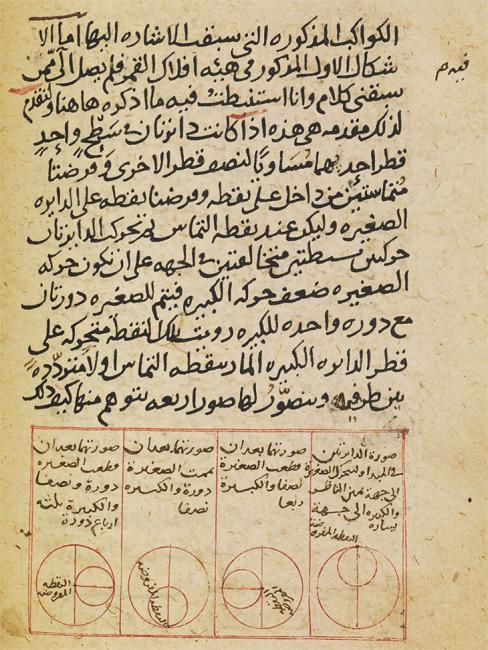 الكواكب المذكوره التى سبقت الاشاره اليها اما الا
شكال الاول المذكور فى هيئه افلاك القمر فلم يصل الى ممن
سبقنى كلام وانا استنبطت فيه ما اذكره هاهنا ونقدم
لذلك مقدمه هى هذه اذا كانت دايرتان فى سطح واحد
قطر احديهما مساويا لنصف قطر الاخرى وفرضتا
متماستين من داخل على نقطه وفرضنا نقطه على الدايره
الصغيره وليكن عند نقطه التماس ثم تحركت الدايرتان
حركتين بسيطتين متخالفتين فى الجهه على ان تكون حركه
الصغيره ضعف حركه الكبيره فيتم للصغيره دورتان
مع دوره واحده للكبيره رويت تلك النقطه متحركه على
قطر الدايره الكبيره المار بنقطه التماس اولا متردده
بين طرفيه ويتصور لها صور اربعه يتوهم منها كيف ذلك
صورة الدايرتين
فى المبدا وليتحرك الصغيره
الى جهة يمين الناظر
والكبيره الى جهة
يساره
النقطه المفروضه
صورتهما بعد ان
قطعت الصغيره
نصفا والكبيرة
ربعا
النقطه المفروضه
صورتهما بعد ان
تمت الصغيرة
دورة والكبيره
نصفا
النقطه المفروضه
صورتهما بعد ان
قطعت الصغيره
دورة ونصفا
والكبيرة ثلثه
ارباع دورة
النقطه
المفروضه